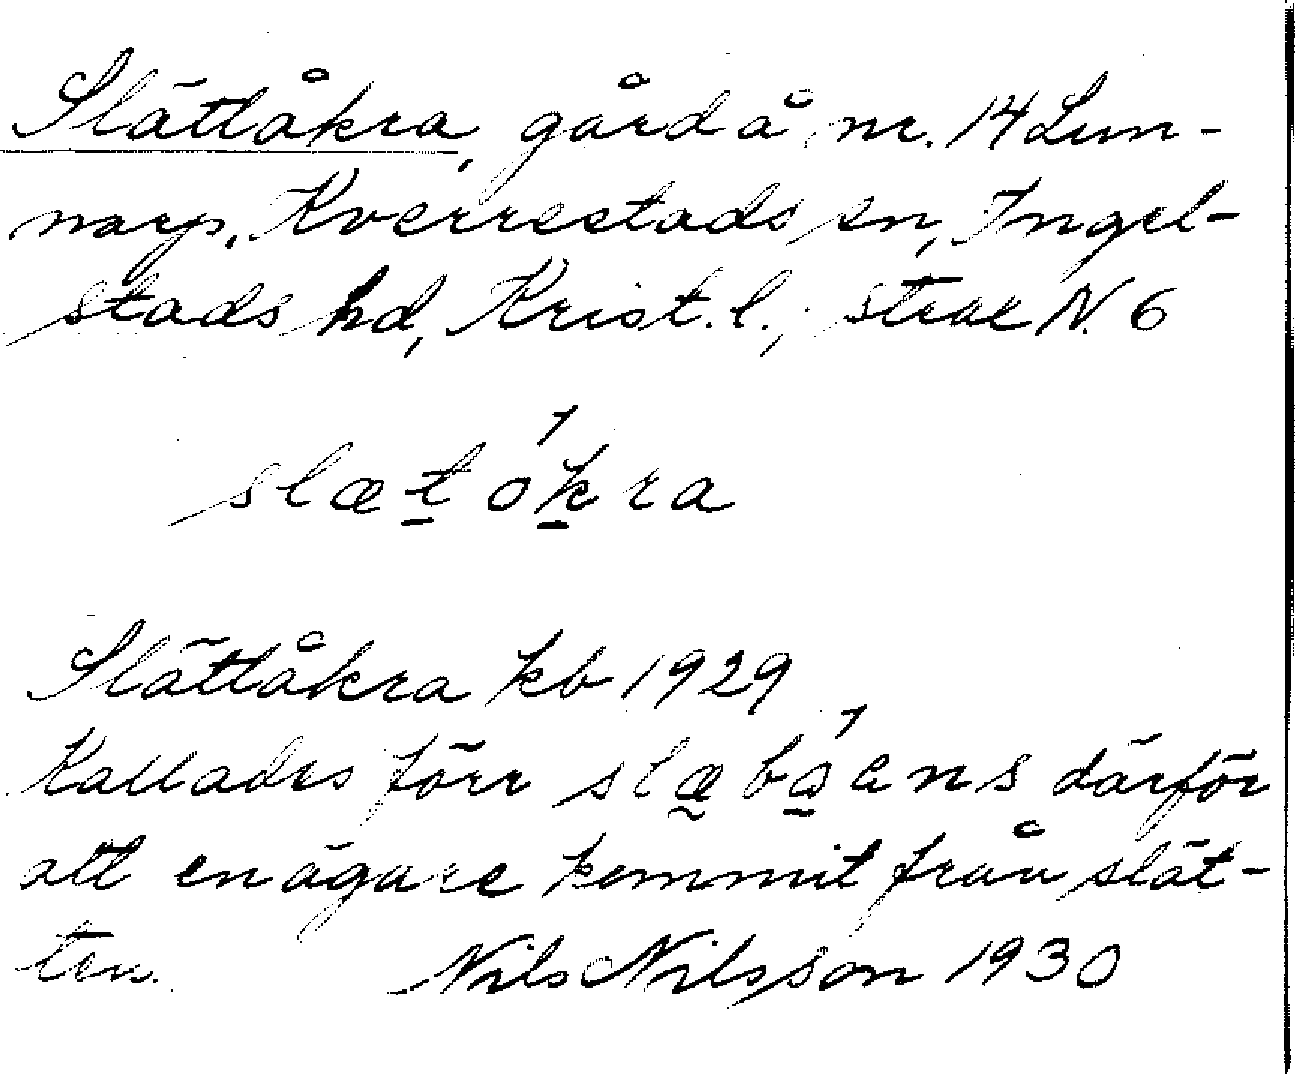 Slättåkra, gård å nr. 14 Lun-
narp, Kverrestads sn, Ingel-
stads hd, Krist. l.; strax N. 6
slætókra
Slättåkra kb 1929
Kallades förr slæbóens därför
att en ägare kommit från slät-
ten. Nils Nilsson 1930